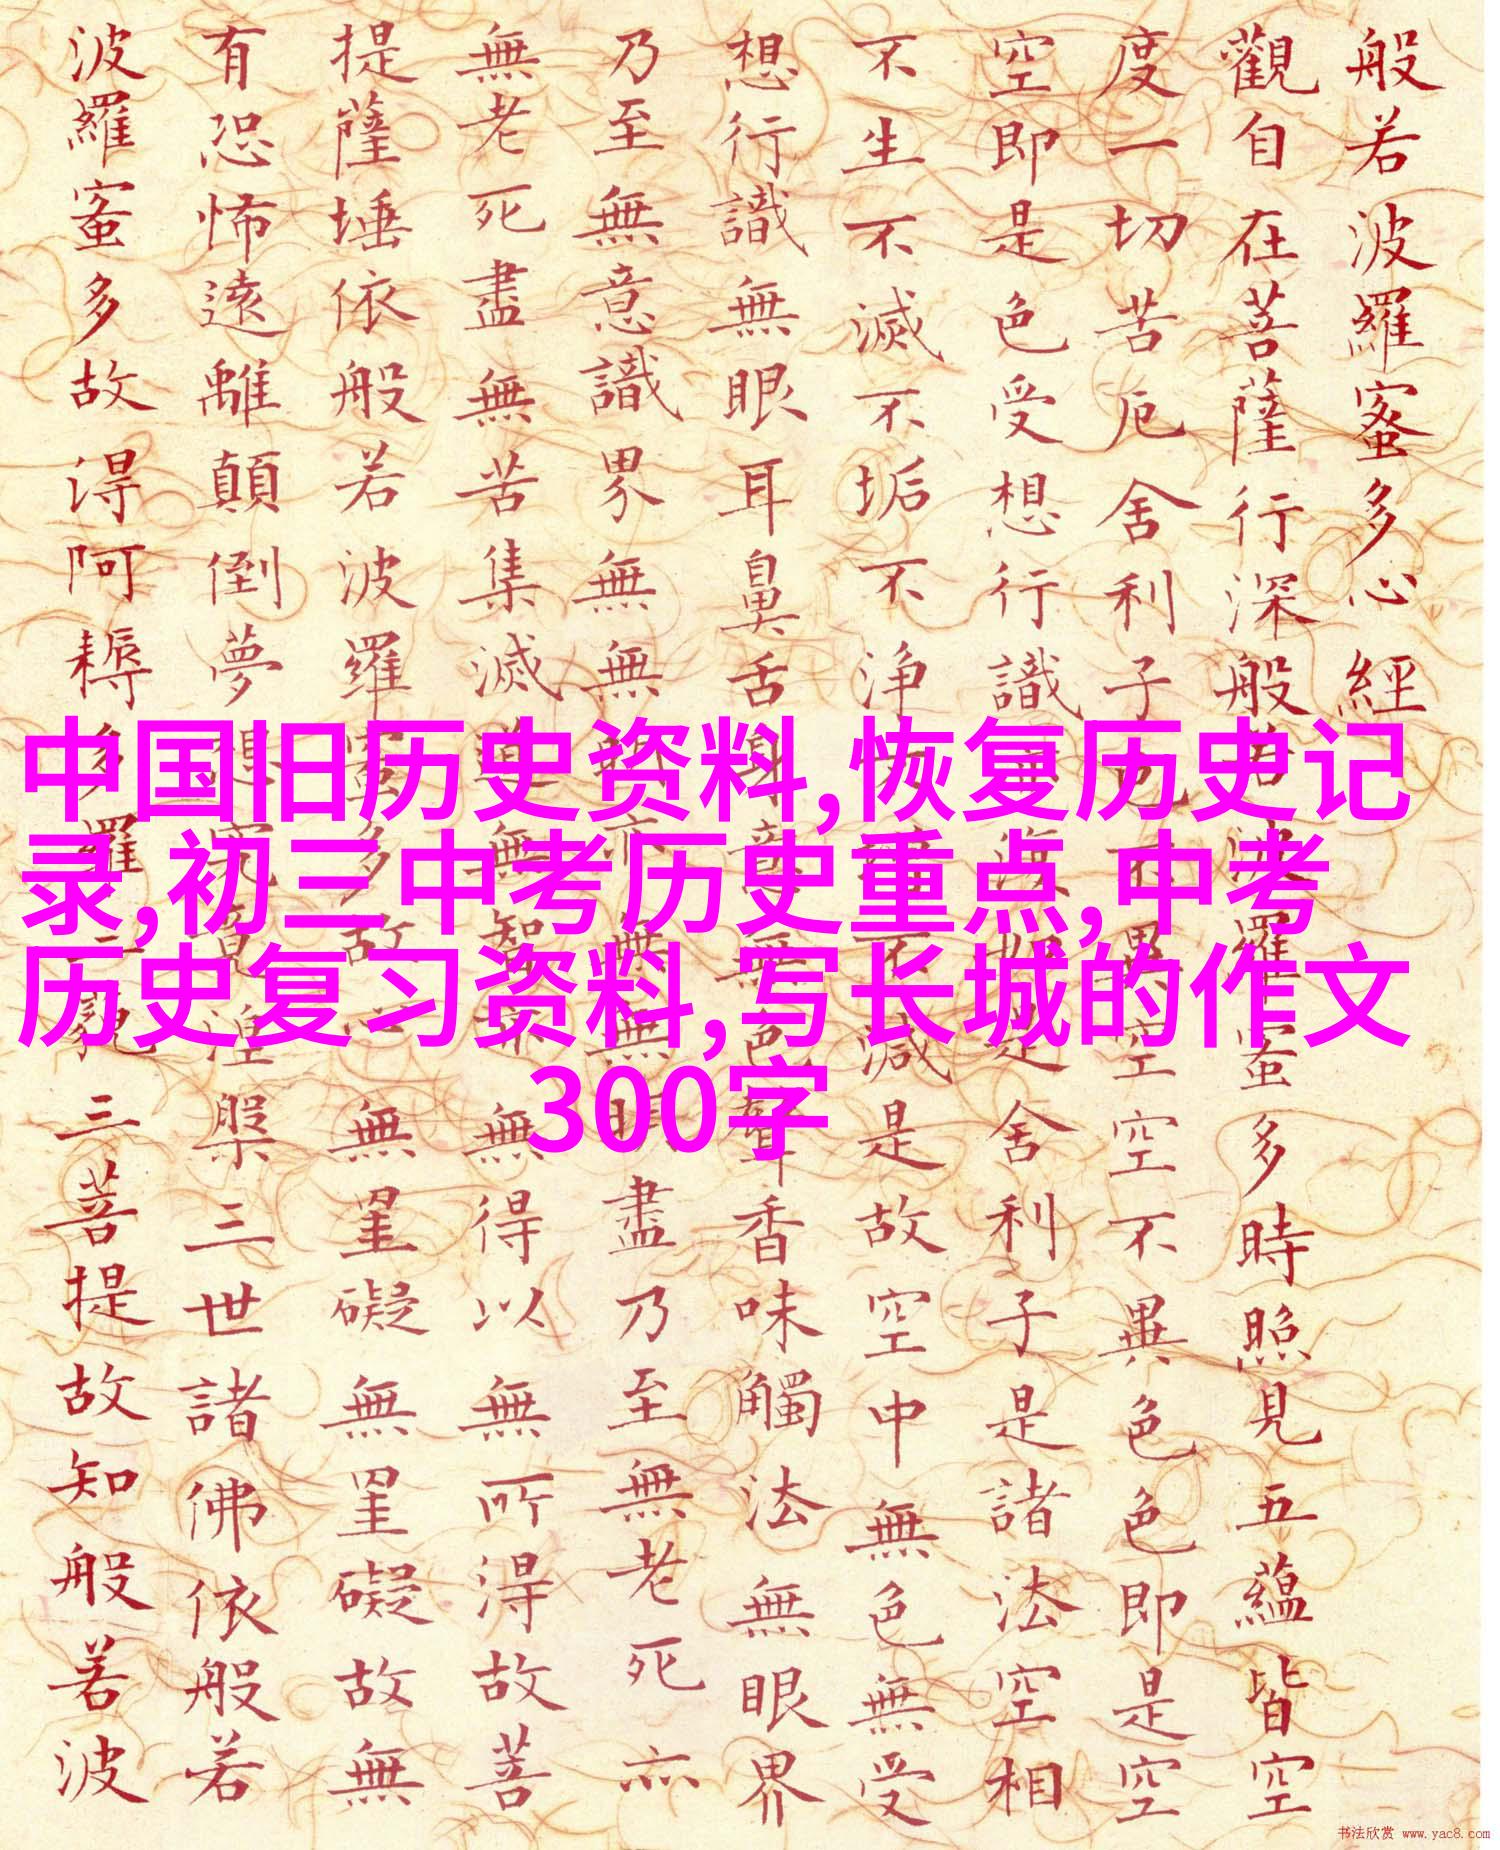 般若波羅蜜多心經
觀自在菩薩行深般若波羅蜜多時照見五蘊皆空
度一切苦厄舍利子色不異空空不異色色即是空
空即是色受想行識亦復如是舍利子是諸法空相
不生不滅不垢不淨不增不減是故空中無色無受
想行識無眼耳鼻舌身意無色聲香味觸法無眼界
乃至無意識界無無明亦無無明盡乃至無老死亦
無老死盡無苦集滅道無智亦無得以無所得故菩
提薩埵依般若波羅蜜多故心無罣礙無罣礙故無
有恐怖遠離顛倒夢想究竟涅槃三世諸佛依般若
波羅蜜多故得阿耨多羅三藐三菩提故知般若波
中国旧历史资料,恢复历史记
录,初三中考历史重点,中考
历史复习资料,写长城的作文
300字
书法欣赏 www.yac8.com